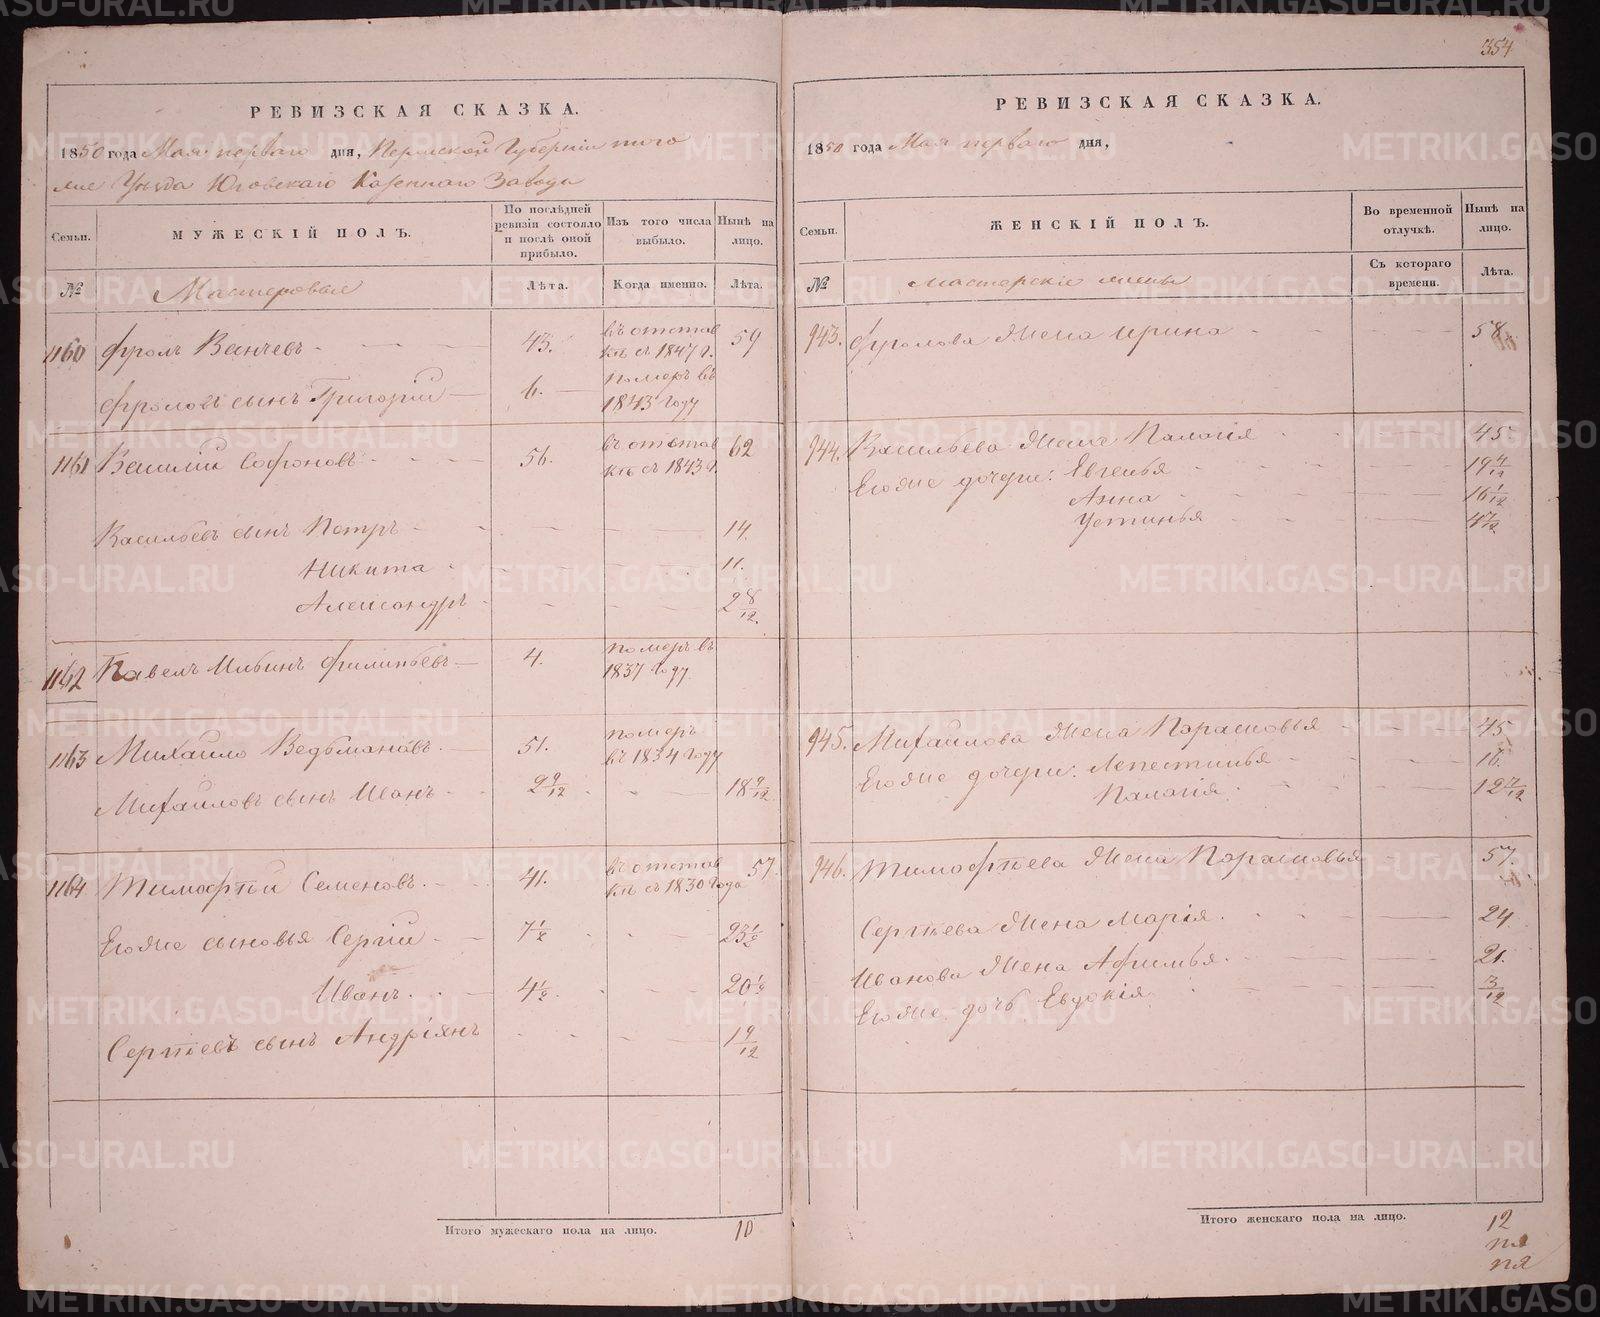 354
РЕВИЗСКАЯ СКАЗКА.
1850 года Мая перваго дня, Пермской Губерніи того
же Уѣзда Юговскаго Казеннаго Завода
Семьи.
МУЖЕСКІЙ ПОЛЪ.
По послѣдней ревизіи состояло и послѣ оной прибыло.
Изъ того числа выбыло.
Нынѣ на лицо.
№
Мастеровыя
Лѣта.
Когда именно.
Лѣта.
1160 Фролъ 43. въ отстав 59
кѣ съ 1847 г.
Фроловъ сынъ Григорій 6. померъ въ
1843 году
1161 Василій Софоновъ 56. въ отстав 62
кѣ съ 1843 г.
Васильевъ сынъ Петръ 14.
Никита 11.
Александръ 2 8/12.
1162 Павелъ Ильинъ Филипьевъ 4. померъ въ
1837 году
1163 Михайло Ведьмановъ 51. померъ
въ 1834 году
Михайловъ сынъ Иванъ 2 9/12 18 9/12
1164 Тимофѣй Семеновъ 41. въ отстав 57.
кѣ съ 1830 года
Егоже сыновья Сергій 7 1/2 23 1/2
Иванъ 4 1/2 20 1/2
Сергѣевъ сынъ Андріянъ 1 9/12
Итого мужескаго пола на лицо. 10
РЕВИЗСКАЯ СКАЗКА.
1850 года Мая перваго дня,
Семьи.
ЖЕНСКІЙ ПОЛЪ.
Во временной отлучкѣ.
Нынѣ на лицо.
№
Мастерскіе жены
Съ котораго времени.
Лѣта.
943. Фролова жена Ирина 58
944. Васильева жена Палагія 45
Егоже дочери: Евгенья 19 4/12
Анна 16 1/12
Устинья 4 7/12
945. Михайлова жена Парасковья 45
Егоже дочери: Лепестинья 16.
Палагія 12 7/12
946. Тимофѣева жена Парасковья 57.
Сергѣева жена Марія 24
Иванова жена Афимья 21.
Егоже дочь Евдокія 3/12
Итого женскаго пола на лицо. 12
METRIKI.GASO-URAL.RU